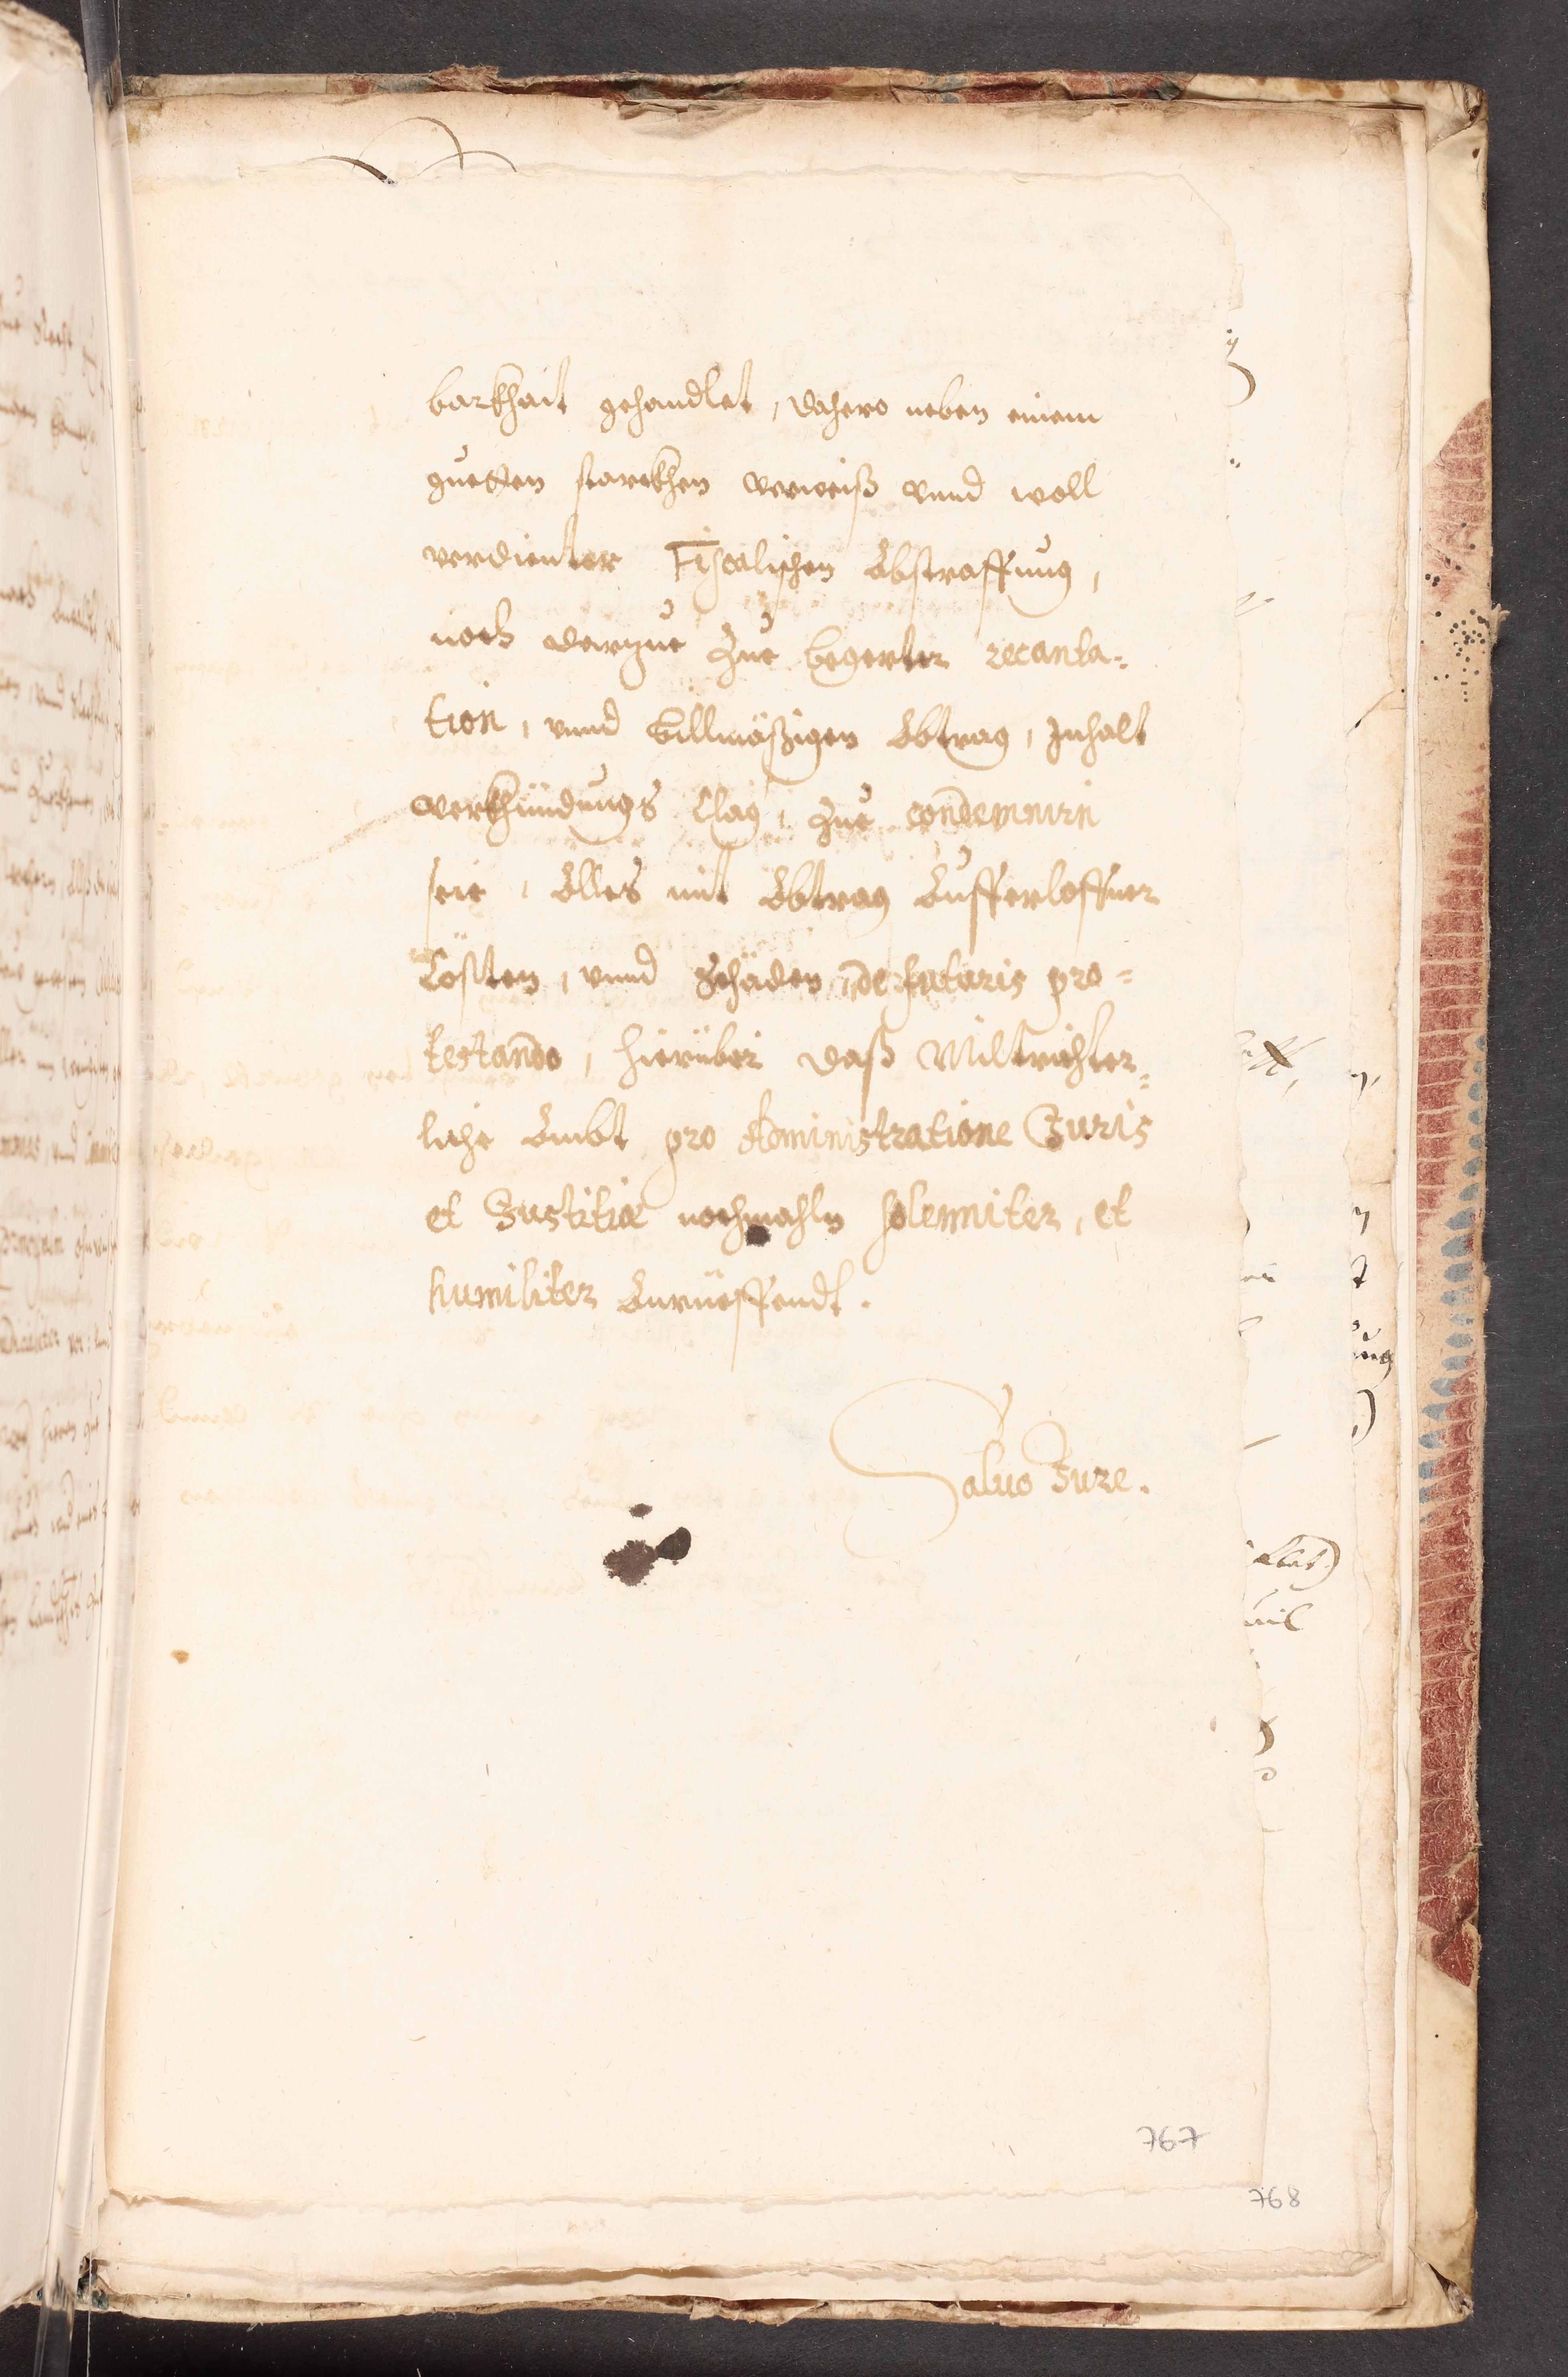 barkhait gehandlet, dahero neben einem
guetten starckhen verweiß vnnd woll
verdienter Fiscalischen Abstraffung,
noch darzue Zue begerter recanta-
tion, vnnd billmäßigen Abtrag, Inhalt
verkhündungs Clag, Zue condemnirn
seie, Alles mit Abtrag Aufferloffner
Cösten, vnnd Schäden, de futuris pro-
testando, hierüber daß Miltrichter-
liche Ambt pro Administratione Juris
et Justitiæ nochmahln solenniter, et
humiliter Anrüeffendt.
Saluo Jure.
767
768